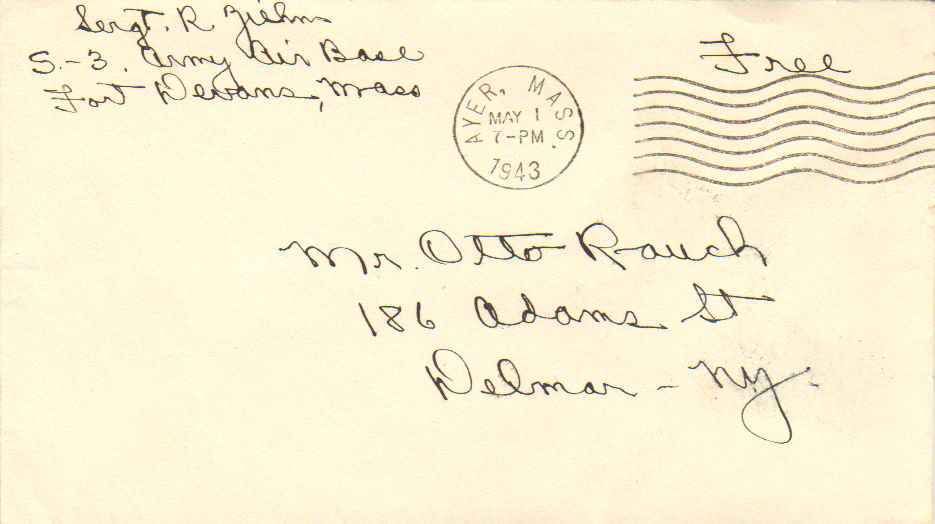 Sergt. R. Ziehm
S-3. Army Air Base
Fort Devans, Mass
Free
AYER, MASS.
MAY 1
7-PM
1943
Mr. Otto Rauch
186 Adams St
Delmar - NY.